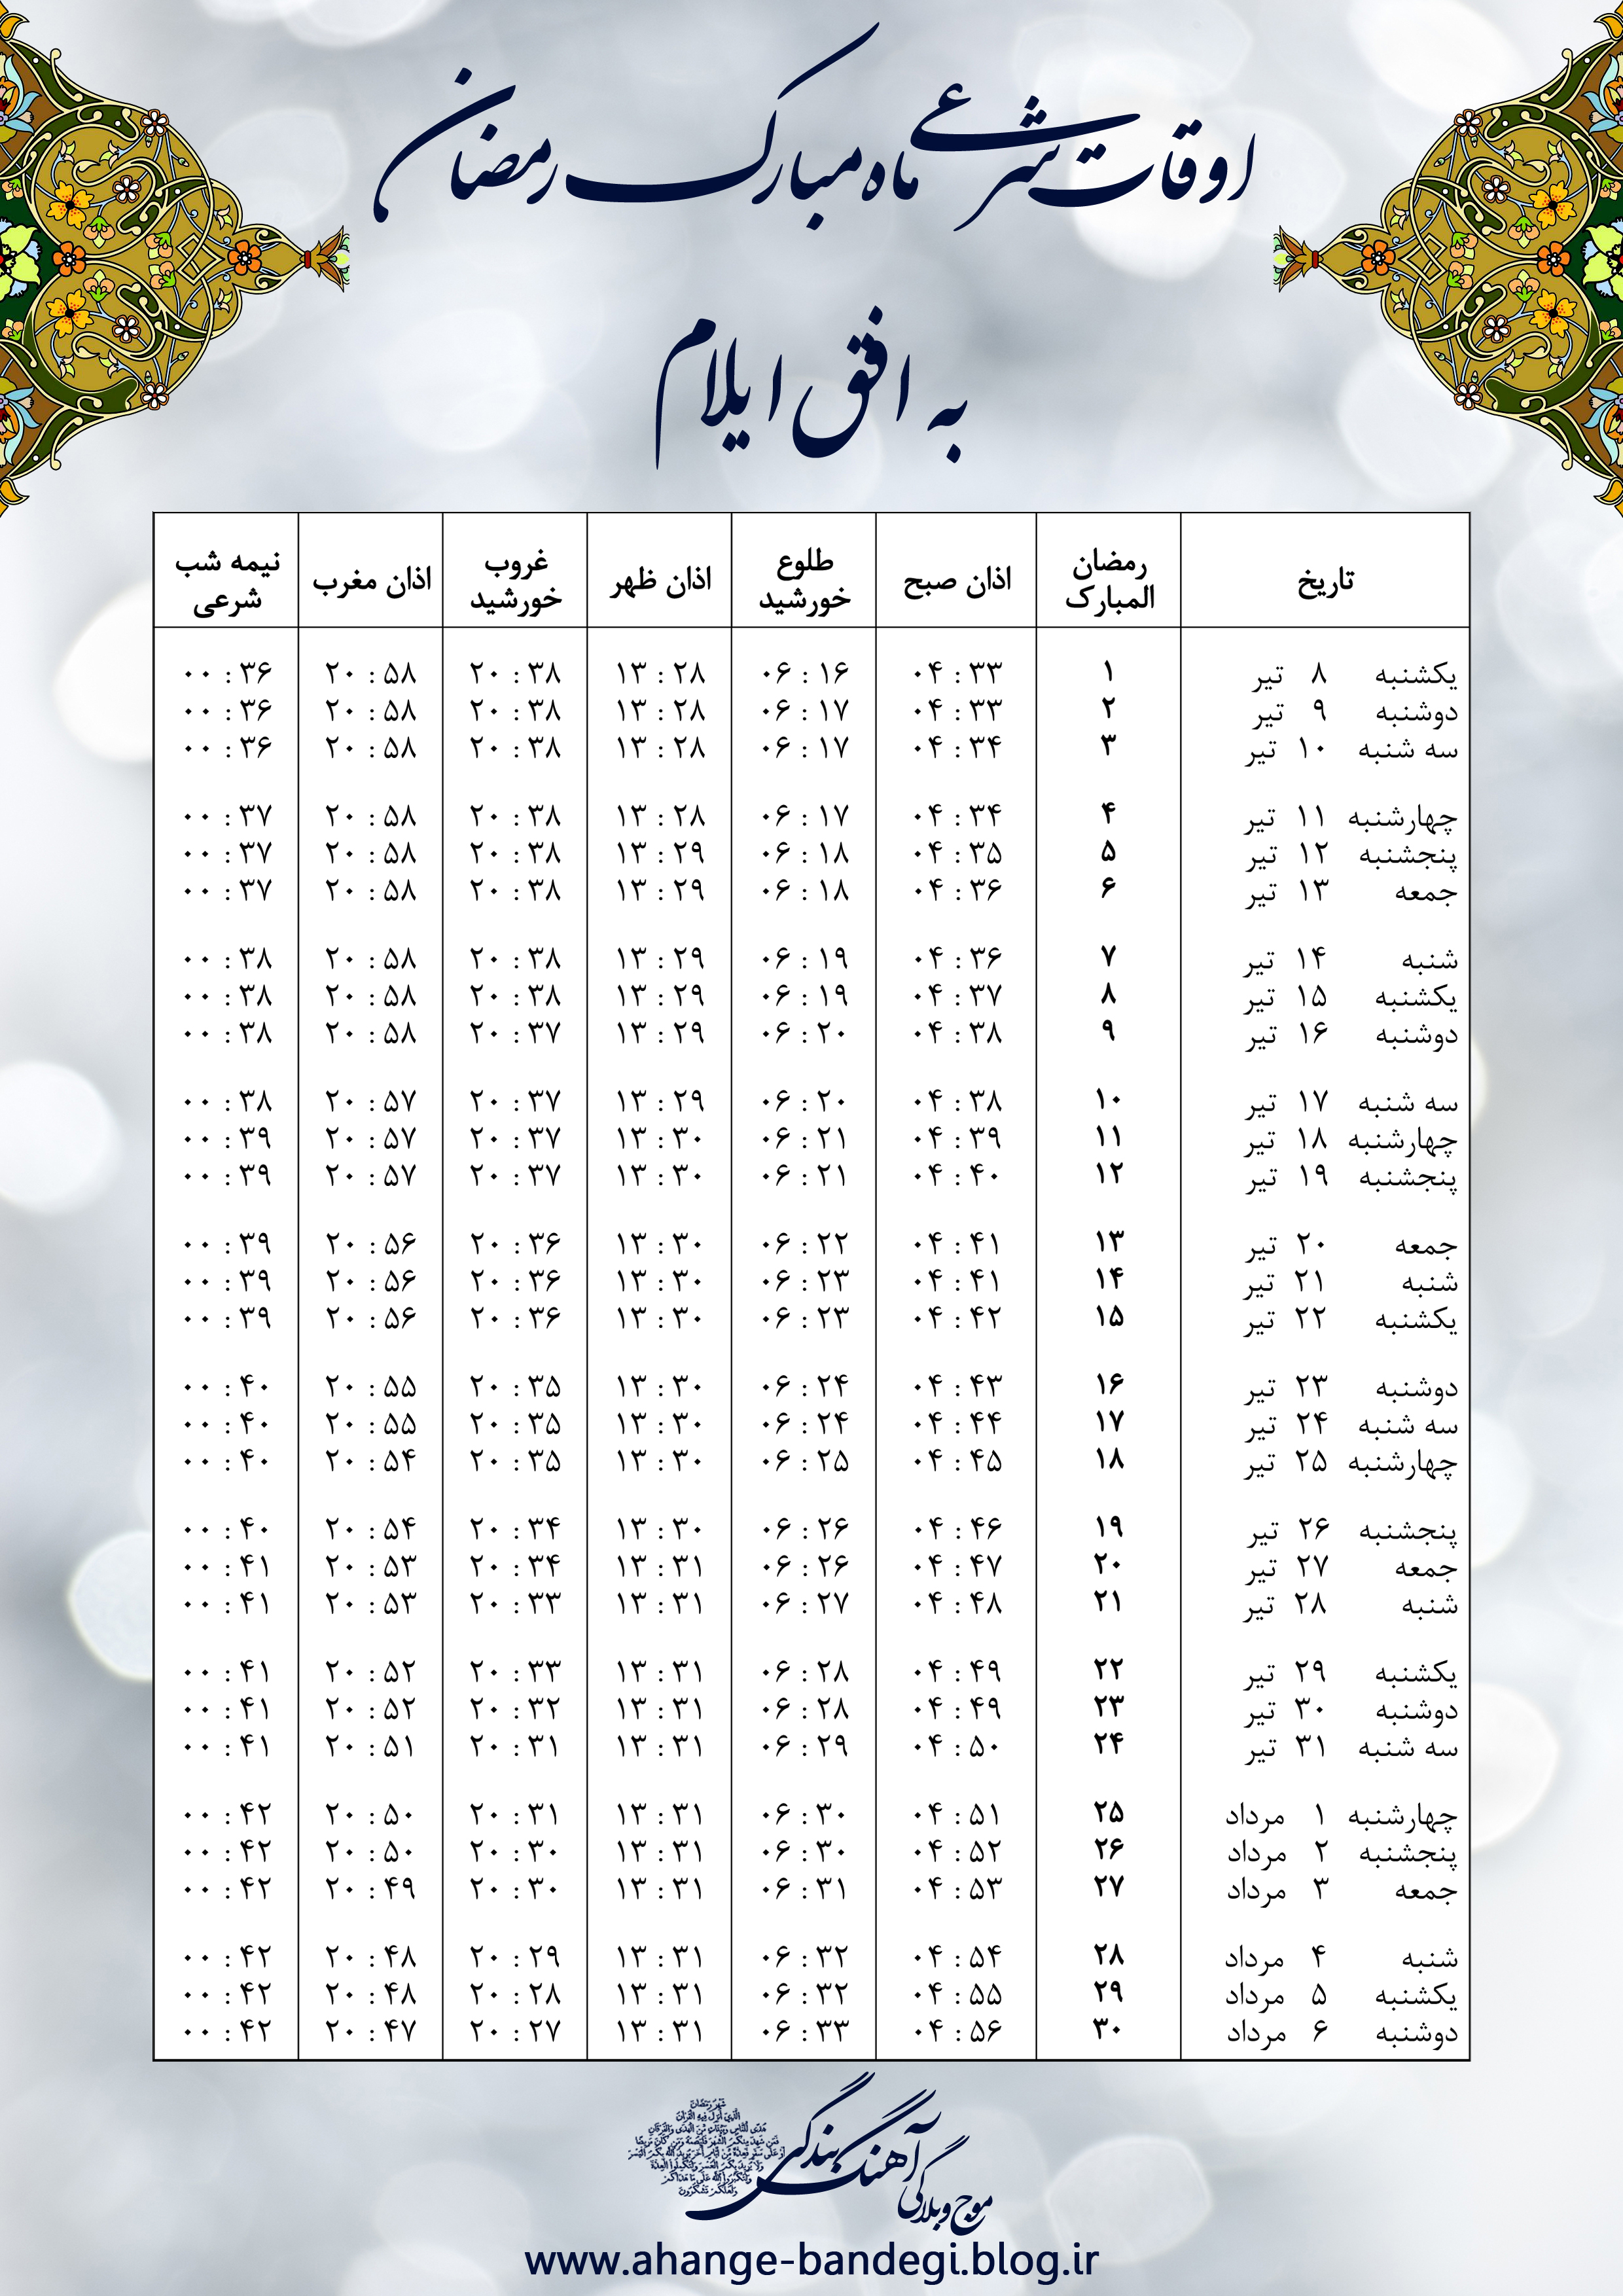 اوقات شرعی ماه مبارک رمضان
به افق ایلام
تاریخ رمضان المبارک اذان صبح طلوع خورشید اذان ظهر غروب خورشید اذان مغرب نیمه شب شرعی
یکشنبه ۸ تیر ۱ ۰۴:۳۳ ۰۶:۱۶ ۱۳:۲۸ ۲۰:۳۸ ۲۰:۵۸ ۰۰:۳۶
دوشنبه ۹ تیر ۲ ۰۴:۳۳ ۰۶:۱۷ ۱۳:۲۸ ۲۰:۳۸ ۲۰:۵۸ ۰۰:۳۶
سه شنبه ۱۰ تیر ۳ ۰۴:۳۴ ۰۶:۱۷ ۱۳:۲۸ ۲۰:۳۸ ۲۰:۵۸ ۰۰:۳۶
چهارشنبه ۱۱ تیر ۴ ۰۴:۳۴ ۰۶:۱۷ ۱۳:۲۸ ۲۰:۳۸ ۲۰:۵۸ ۰۰:۳۷
پنجشنبه ۱۲ تیر ۵ ۰۴:۳۵ ۰۶:۱۸ ۱۳:۲۹ ۲۰:۳۸ ۲۰:۵۸ ۰۰:۳۷
جمعه ۱۳ تیر ۶ ۰۴:۳۶ ۰۶:۱۸ ۱۳:۲۹ ۲۰:۳۸ ۲۰:۵۸ ۰۰:۳۷
شنبه ۱۴ تیر ۷ ۰۴:۳۶ ۰۶:۱۹ ۱۳:۲۹ ۲۰:۳۸ ۲۰:۵۸ ۰۰:۳۸
یکشنبه ۱۵ تیر ۸ ۰۴:۳۷ ۰۶:۱۹ ۱۳:۲۹ ۲۰:۳۸ ۲۰:۵۸ ۰۰:۳۸
دوشنبه ۱۶ تیر ۹ ۰۴:۳۸ ۰۶:۲۰ ۱۳:۲۹ ۲۰:۳۷ ۲۰:۵۸ ۰۰:۳۸
سه شنبه ۱۷ تیر ۱۰ ۰۴:۳۸ ۰۶:۲۰ ۱۳:۲۹ ۲۰:۳۷ ۲۰:۵۷ ۰۰:۳۸
چهارشنبه ۱۸ تیر ۱۱ ۰۴:۳۹ ۰۶:۲۱ ۱۳:۳۰ ۲۰:۳۷ ۲۰:۵۷ ۰۰:۳۹
پنجشنبه ۱۹ تیر ۱۲ ۰۴:۴۰ ۰۶:۲۱ ۱۳:۳۰ ۲۰:۳۷ ۲۰:۵۷ ۰۰:۳۹
جمعه ۲۰ تیر ۱۳ ۰۴:۴۱ ۰۶:۲۲ ۱۳:۳۰ ۲۰:۳۶ ۲۰:۵۶ ۰۰:۳۹
شنبه ۲۱ تیر ۱۴ ۰۴:۴۱ ۰۶:۲۳ ۱۳:۳۰ ۲۰:۳۶ ۲۰:۵۶ ۰۰:۳۹
یکشنبه ۲۲ تیر ۱۵ ۰۴:۴۲ ۰۶:۲۳ ۱۳:۳۰ ۲۰:۳۶ ۲۰:۵۶ ۰۰:۳۹
دوشنبه ۲۳ تیر ۱۶ ۰۴:۴۳ ۰۶:۲۴ ۱۳:۳۰ ۲۰:۳۵ ۲۰:۵۵ ۰۰:۴۰
سه شنبه ۲۴ تیر ۱۷ ۰۴:۴۴ ۰۶:۲۴ ۱۳:۳۰ ۲۰:۳۵ ۲۰:۵۵ ۰۰:۴۰
چهارشنبه ۲۵ تیر ۱۸ ۰۴:۴۵ ۰۶:۲۵ ۱۳:۳۰ ۲۰:۳۵ ۲۰:۵۴ ۰۰:۴۰
پنجشنبه ۲۶ تیر ۱۹ ۰۴:۴۶ ۰۶:۲۶ ۱۳:۳۰ ۲۰:۳۴ ۲۰:۵۴ ۰۰:۴۰
جمعه ۲۷ تیر ۲۰ ۰۴:۴۷ ۰۶:۲۶ ۱۳:۳۱ ۲۰:۳۴ ۲۰:۵۳ ۰۰:۴۱
شنبه ۲۸ تیر ۲۱ ۰۴:۴۸ ۰۶:۲۷ ۱۳:۳۱ ۲۰:۳۳ ۲۰:۵۳ ۰۰:۴۱
یکشنبه ۲۹ تیر ۲۲ ۰۴:۴۹ ۰۶:۲۸ ۱۳:۳۱ ۲۰:۳۳ ۲۰:۵۲ ۰۰:۴۱
دوشنبه ۳۰ تیر ۲۳ ۰۴:۴۹ ۰۶:۲۸ ۱۳:۳۱ ۲۰:۳۲ ۲۰:۵۲ ۰۰:۴۱
سه شنبه ۳۱ تیر ۲۴ ۰۴:۵۰ ۰۶:۲۹ ۱۳:۳۱ ۲۰:۳۱ ۲۰:۵۱ ۰۰:۴۱
چهارشنبه ۱ مرداد ۲۵ ۰۴:۵۱ ۰۶:۳۰ ۱۳:۳۱ ۲۰:۳۱ ۲۰:۵۰ ۰۰:۴۲
پنجشنبه ۲ مرداد ۲۶ ۰۴:۵۲ ۰۶:۳۰ ۱۳:۳۱ ۲۰:۳۰ ۲۰:۵۰ ۰۰:۴۲
جمعه ۳ مرداد ۲۷ ۰۴:۵۳ ۰۶:۳۱ ۱۳:۳۱ ۲۰:۳۰ ۲۰:۴۹ ۰۰:۴۲
شنبه ۴ مرداد ۲۸ ۰۴:۵۴ ۰۶:۳۲ ۱۳:۳۱ ۲۰:۲۹ ۲۰:۴۸ ۰۰:۴۲
یکشنبه ۵ مرداد ۲۹ ۰۴:۵۵ ۰۶:۳۲ ۱۳:۳۱ ۲۰:۲۸ ۲۰:۴۸ ۰۰:۴۲
دوشنبه ۶ مرداد ۳۰ ۰۴:۵۶ ۰۶:۳۳ ۱۳:۳۱ ۲۰:۲۷ ۲۰:۴۷ ۰۰:۴۲
موج وبلاگی آهنگ بندگی
www.ahange-bandegi.blog.ir